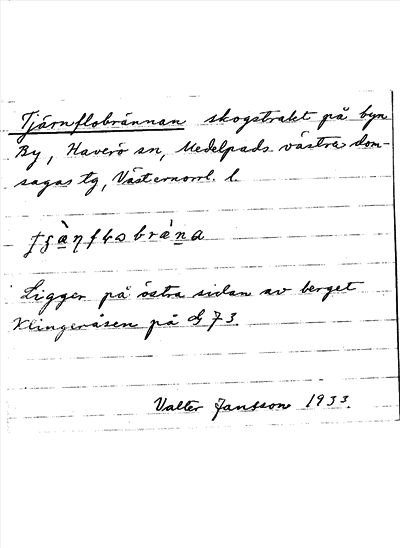 Tjärnflobrännan skogstrakt på byn
By, Haverö sn, Medelpads västra dom-
sagas tg, Västernorrl. l.
Ligger på östra sidan av berget
Klingeråsen på
Valter Jansson 1933.